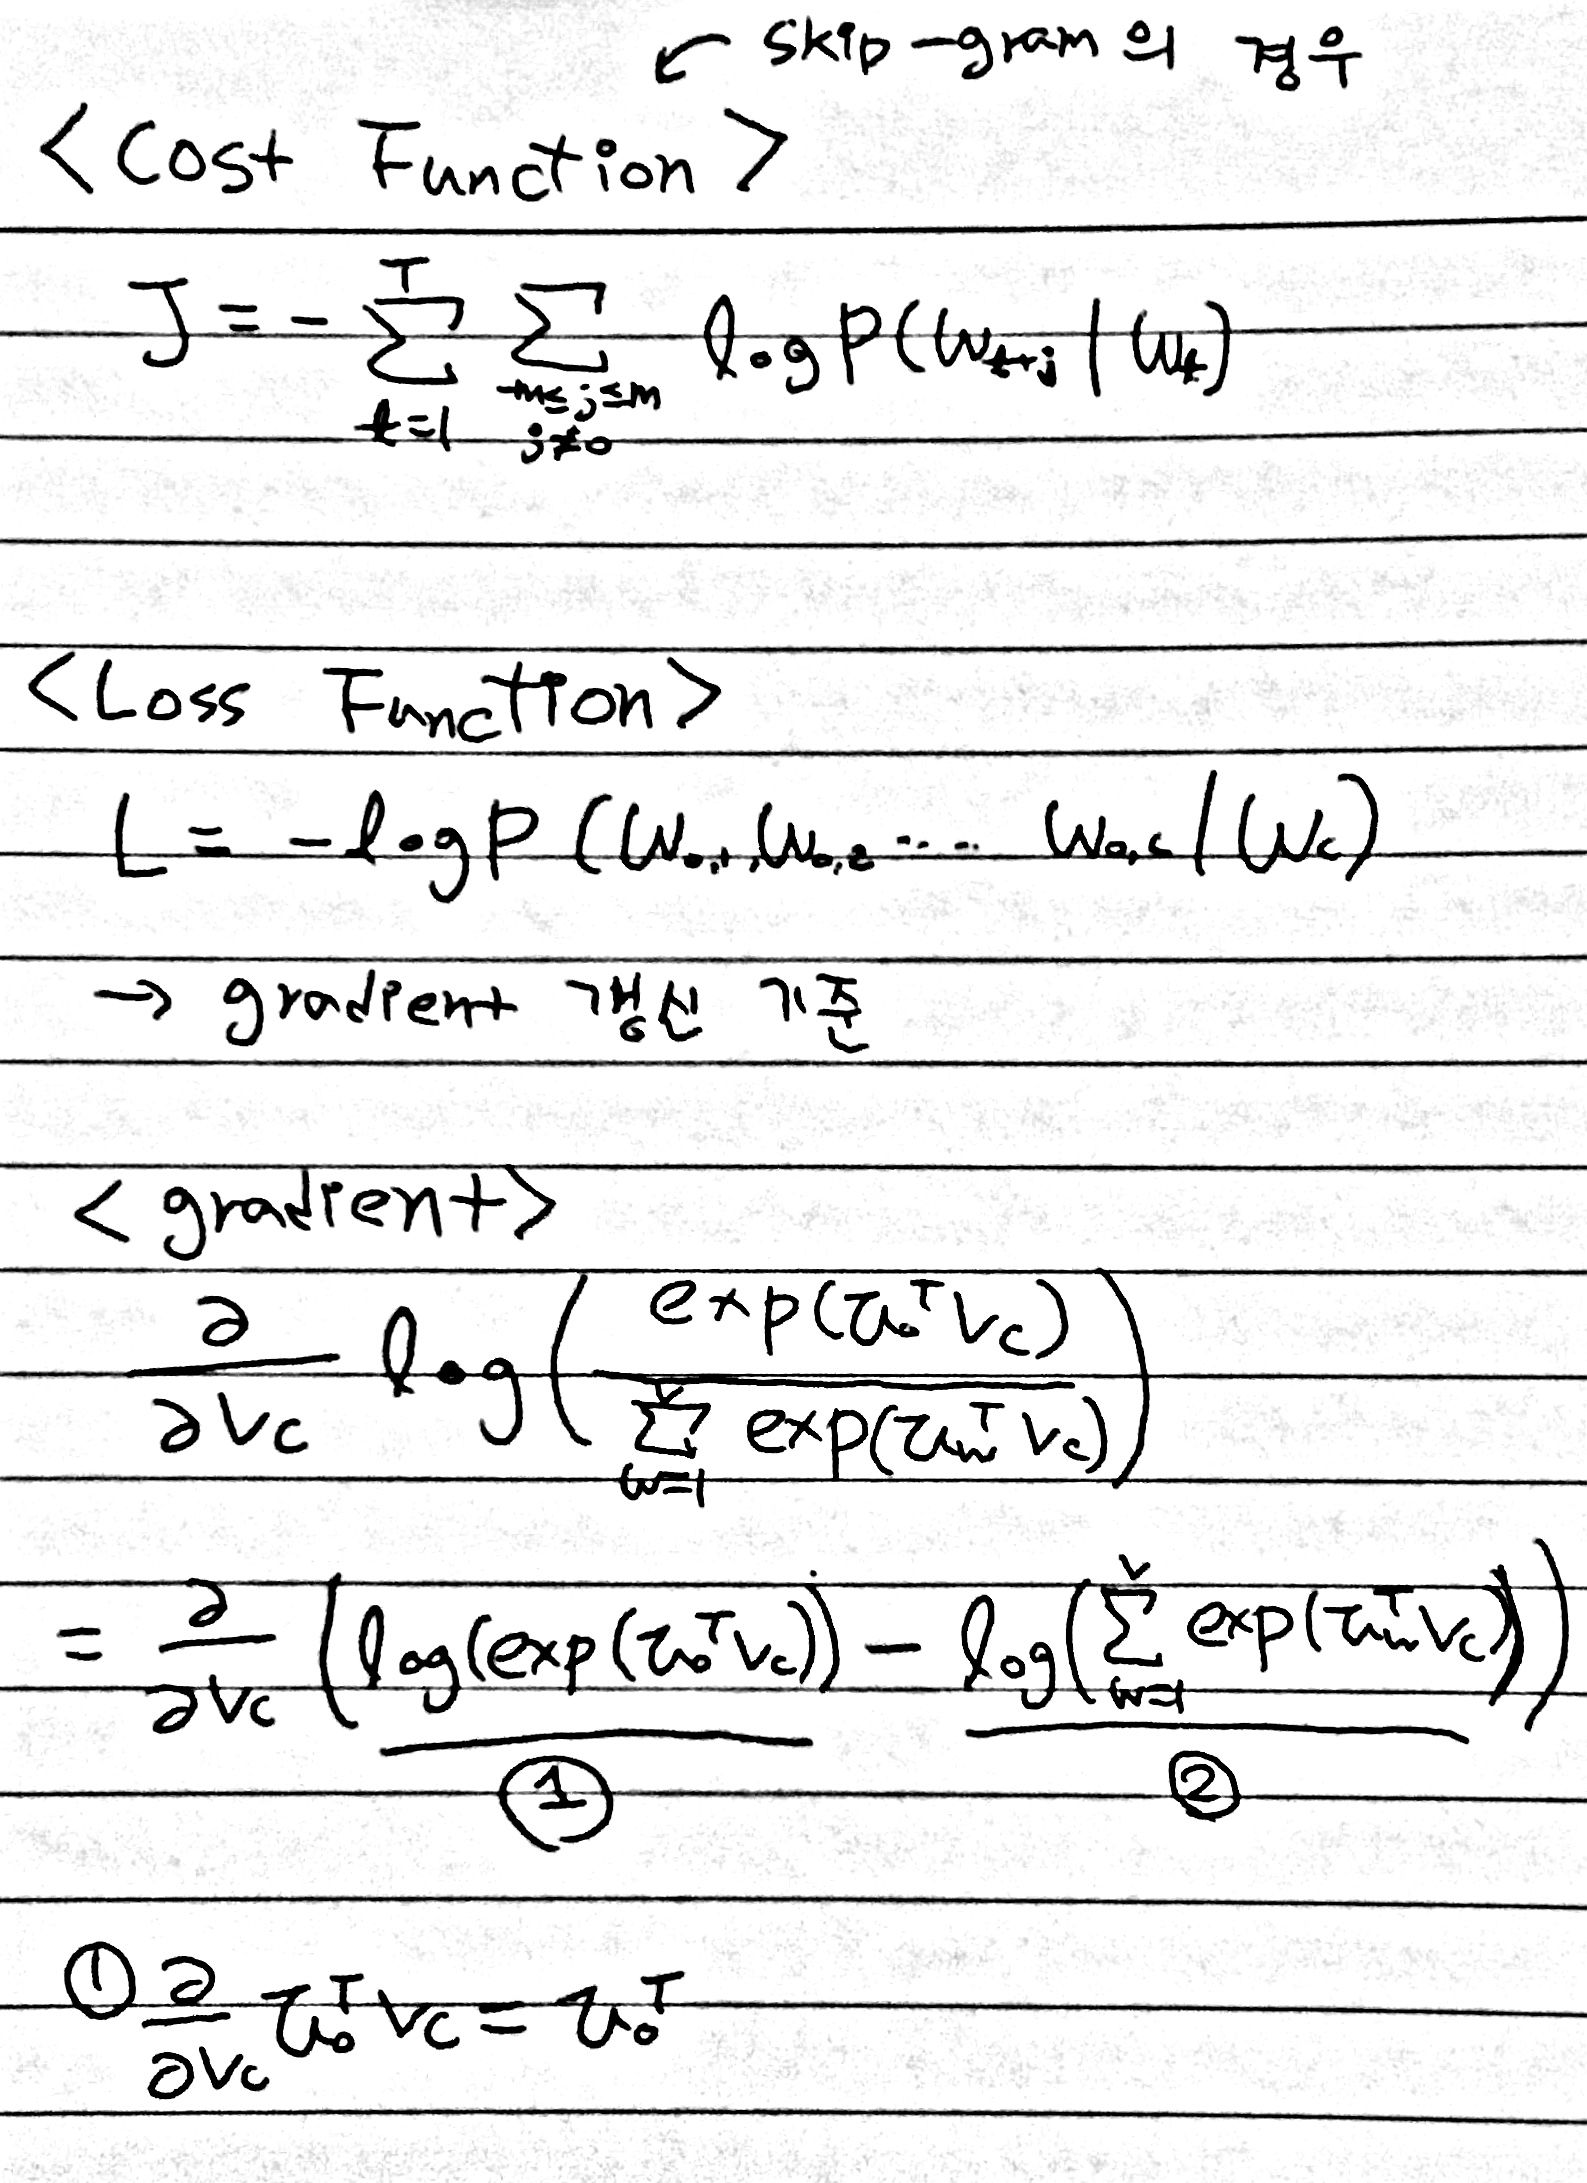 ↙ skip-gram의 경우
<Cost Function>
J = - \sum_{t=1}^{T} \sum_{-m≤j≤m, j≠0} log P(w_{t+j} | w_t)
<Loss Function>
L = -log P(w_{o,1}, w_{o,2} ····· w_{o,c} | w_c)
→ gradient 갱신 기준
<gradient>
\frac{∂}{∂v_c} log( \frac{exp(u_o^T v_c)}{\sum_{w=1}^{v} exp(u_w^T v_c)} )
= \frac{∂}{∂v_c} ( log(exp(u_o^T v_c)) - log( \sum_{w=1}^{v} exp(u_w^T v_c) ) )
① ②
① \frac{∂}{∂v_c} u_o^T v_c = u_o^T